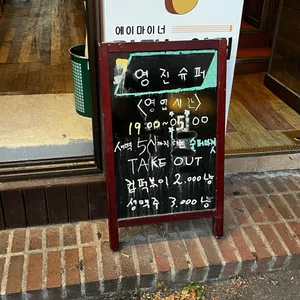 에이마이너
영진슈퍼
<영업시간>
19:00~05:00
새벽 5시까지 하는 슈퍼마켓
TAKE OUT
컵떡볶이 2.000냥
성맥주 3.000냥